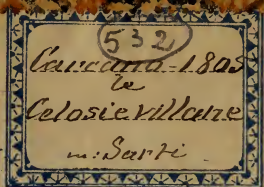 532
Carcano - 1805
le
Gelosie villane
m: Sarti